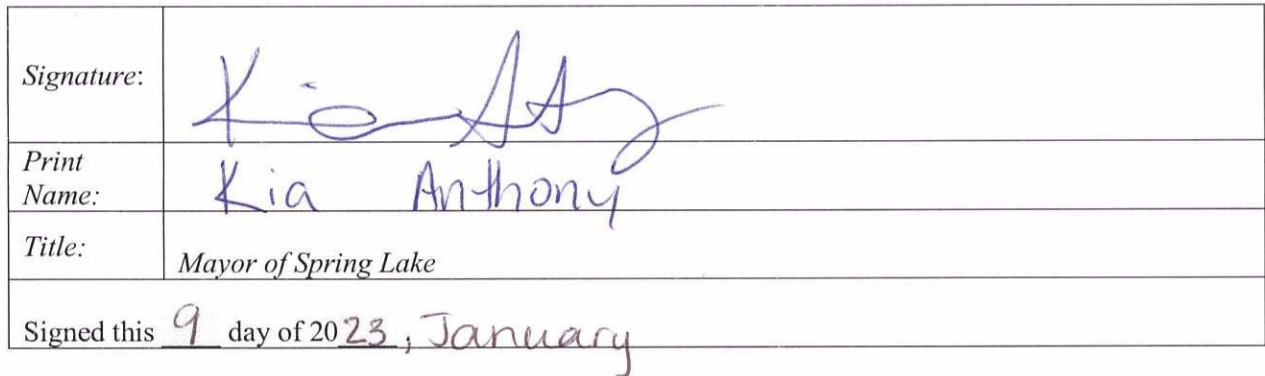 Signature: Kia Anthony
Print
Name: Kia Anthony
Title: Mayor of Spring Lake
Signed this 9 day of 2023, January